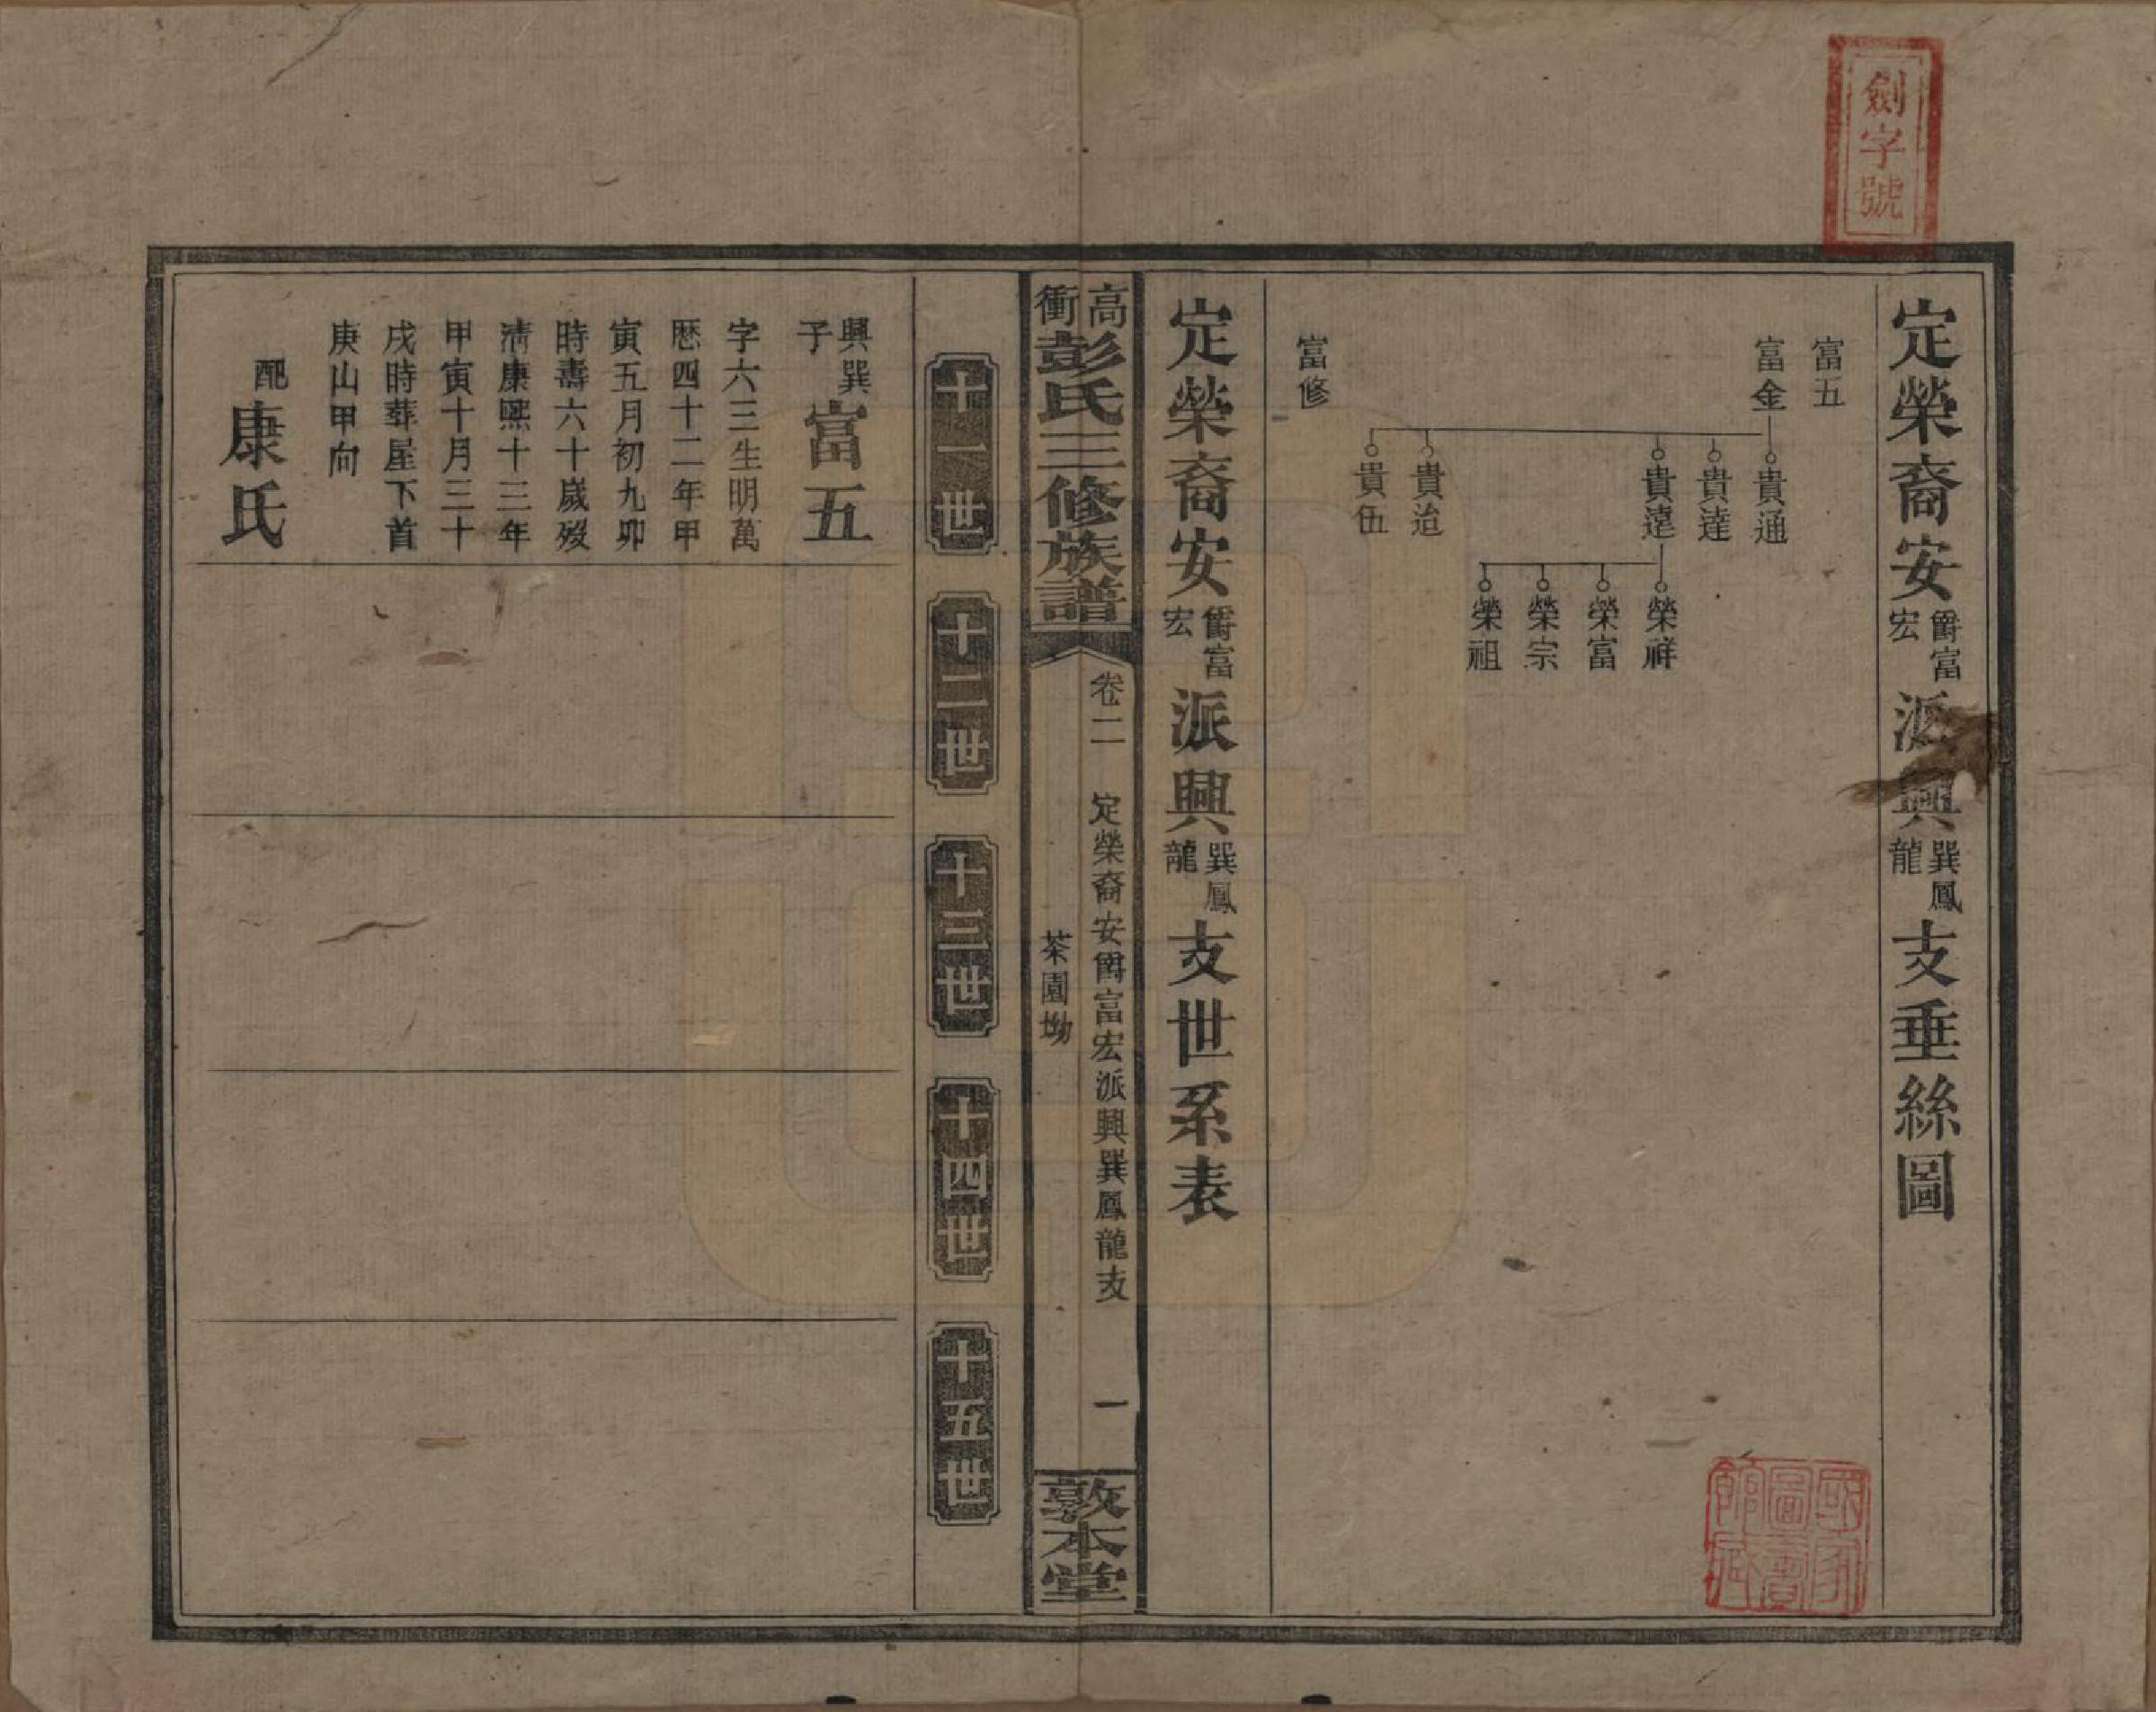 劍字號
定榮裔安爵富宏派興巽鳳龍支垂絲圖
富五
富金
貴通
貴達
貴遠
貴治
貴伍
榮祥
榮富
榮宗
榮祖
富修
定榮裔安爵富宏派興巽鳳龍支世系表
高衝彭氏三修族譜
卷二 定榮裔安爵富宏派興巽鳳龍支
茶園坳
一
敦本堂
十一世
十二世
十三世
十四世
十五世
興巽子富五
字六三生明萬
歷四十二年甲
寅五月初九卯
時壽六十歲歿
清康熙十三年
甲寅十月三十
戌時葬屋下首
庚山甲向
配康氏
國家圖書館藏